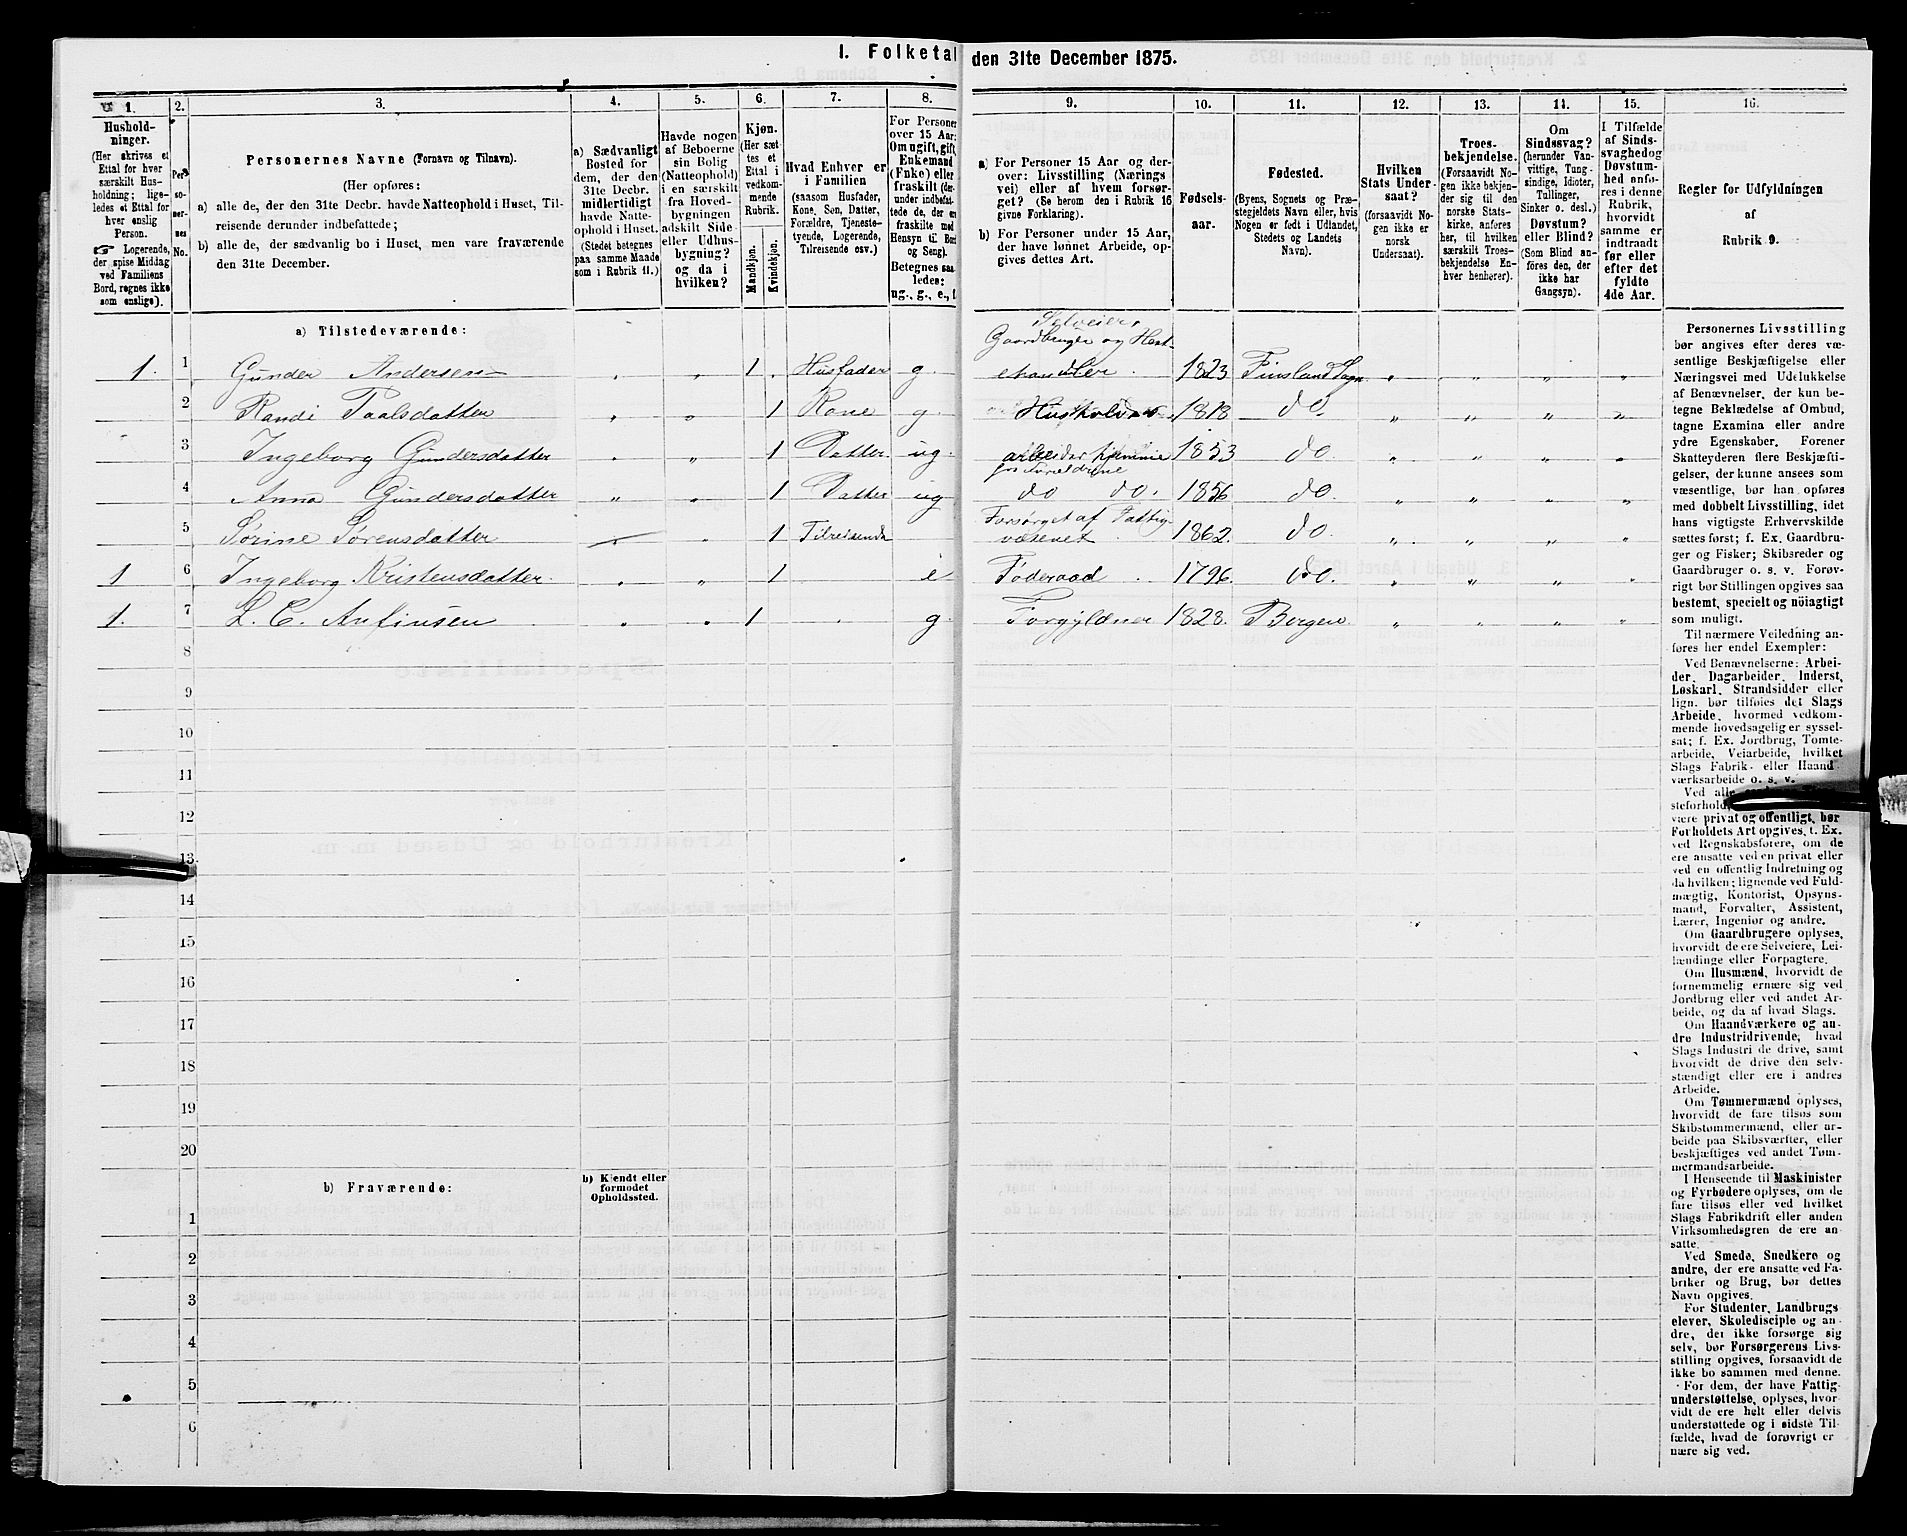 I. Folketal den 31te December 1875.
1. 2. 3. 4. 5. 6. 7. 8. 9. 10. 11. 12. 13. 14. 15. 16.
Hushold-
ninger.
(Her skrives et
Ettal for hver
særskilt Hus-
holdning; lige-
ledes et Ettal for
hver enslig
Person.
☞ Logerende,
der spise Middag
ved Familiens
Bord, regnes ikke
som enslige).
Per-
so-
ner-
nes
No.
Personernes Navne (Fornavn og Tilnavn).
(Her opføres:
a) alle de, der den 31te Decbr. havde Natteophold i Huset, Til-
reisende derunder indbefattede;
b) alle de, der sædvanlig bo i Huset, men vare fraværende
den 31te December.
a) Sædvanligt
Bosted for
dem, der den
31te Decbr.
midlertidigt
havde Natte-
ophold i Huset.
(Stedet betegnes
paa samme Maade
som i Rubrik 11.)
Havde nogen
af Beboerne
sin Bolig
(Natteophold)
i en særskilt
fra Hoved-
bygningen
adskilt Side-
eller Udhus-
bygning?
og da i
hvilken?
Kjøn.
(Her sæt-
tes et
Ettal i
vedkom-
mende
Rubrik.
Mandkjøn.
Kvindekjøn.
Hvad Enhver er
i Familien
(saasom Husfader,
Kone, Søn, Datter,
Forældre, Tjeneste-
tyende, Logerende,
Tilreisende osv.)
For Personer
over 15 Aar:
Om ugift, gift,
Enkemand
(Enke) eller
fraskilt (der-
under indbefat-
tede de, der ere
fraskilte med
Hensyn til Bord
og Seng).
Betegnes saa-
ledes:
ug., g., e., f.
a) For Personer 15 Aar og der-
over: Livsstilling (Nærings-
vei) eller af hvem forsør-
get? (Se herom den i Rubrik 16
givne Forklaring).
b) For Personer under 15 Aar,
der have lønnet Arbeide, op-
gives dettes Art.
Fødsels-
aar.
Fødested.
(Byens, Sognets og Præ-
stegjeldets Navn eller, hvis
Nogen er født i Udlandet,
Stedets og Landets
Navn).
Hvilken
Stats Under-
saat?
(forsaavidt No-
gen ikke er
norsk
Undersaat).
Troes-
bekjendelse.
(Forsaavidt No-
gen ikke bekjen-
der sig til den
norske Stats-
kirke, anføres
her, til hvilken
særskilt Troes-
bekjendelse En-
hver henhører).
Om
Sindssvag?
(herunder Van-
vittige, Tung-
sindige, Idioter,
Tullinger,
Sinker o. desl.)
Døvstum?
eller Blind?
(Som Blind an-
føres den, der
ikke har
Gangsyn).
I Tilfælde
af Sinds-
svaghed og
Døvstum-
hed anfø-
res i denne
Rubrik,
hvorvidt
samme er
indtraadt
før eller
efter det
fyldte
4de Aar.
Regler for Udfyldningen
af
Rubrik 9.
a) Tilstedeværende:
Selveier,
Gaardbruger og Hest-
1. 1 Gunder Andersen „ „ 1 . Husfader g. ehandler. 1823 Finsland Sogn „ „ „ „
2 Randi Paalsdatter „ „ 1 Kone g. 1818 do. „ „ „ „
3 Ingeborg Gundersdatter „ „ 1 Datter ug. arbeider hjemme 1853 do. „ „ „ „
for Foreldrene
4 Anna Gundersdatter „ „ 1 Datter ug do do. 1856 do. „ „ „ „
Forsørget af Fattig-
5 Sørine Sørensdatter „ 1 Tilreisende væsenet. 1862. do. „ „ „ „
1 6 Ingeborg Kristensdatter. „ „ 1 e Føderaad 1796. do. „ „ „ „
1. 7 L. C. Anfinsen „ „ 1 g. Forgyldner 1828. Bergen. „ „ „ „
8
9
10
11
12
13
14
15
16
17
18
19
20
b) Fraværende:
b) Kjendt eller
formodet
Opholdssted.
1
2
3
4
5
6
Personernes Livsstilling
bør angives efter deres væ-
sentlige Beskjæftigelse eller
Næringsvei med Udelukkelse
af Benævnelser, der kun be-
tegne Beklædelse af Ombud,
tagne Examina eller andre
ydre Egenskaber. Forener
Skatteyderen flere Beskjæfti-
gelser, der kunne ansees som
væsentlige, bør han opføres
med dobbelt Livsstilling, idet
hans vigtigste Erhvervskilde
sættes først; f. Ex. Gaardbru-
ger og Fisker; Skibsreder og
Gaardbruger o. s. v. Forøv-
rigt bør Stillingen opgives saa
bestemt, specielt og nöiagtigt
som muligt.
Til nærmere Veiledning an-
føres her endel Exempler:
Ved Benævnelserne: Arbei-
der, Dagarbeider, Inderst,
Løskarl, Strandsidder eller
lign. bør tilføies det Slags
Arbeide, hvormed vedkom-
mende hovedsagelig er syssel-
sat; f. Ex. Jordbrug, Tomte-
arbeide, Veiarbeide, hvilket
Slags Fabrik- eller Haand-
værksarbeide o. s. v.
Ved alle
steforhold,
være privat og offentligt, bør
Forholdets Art opgives, t. Ex.
ved Regnskabsførere, om de
ere ansatte ved en privat eller
ved en offentlig Indretning og
da hvilken; lignende ved Fuld-
mægtig, Kontorist, Opsyns-
mand, Forvalter, Assistent,
Lærer, Ingeniør og andre.
Om Gaardbrugere oplyses,
hvorvidt de ere Selveiere, Lei-
lændinge eller Forpagtere.
Om Husmænd, hvorvidt de
fornemmelig ernære sig ved
Jordbrug eller ved andet Ar-
beide, og da af hvad Slags.
Om Haandværkere og an-
dre Industridrivende, hvad
Slags Industri de drive, samt
hvorvidt de drive den selv-
stændigt eller ere i andres
Arbeide.
Om Tømmermænd oplyses,
hvorvidt de fare tilsøs som
Skibstømmermænd, eller ar-
beide paa Skibsværfter, eller
beskjæftiges ved andet Tøm-
mermandsarbeide.
I Henseende til Maskinister
og Fyrbødere oplyses, om de
fare tilsøs eller ved hvilket
Slags Fabrikdrift eller anden
Virksomhedsgren de ere an-
satte.
Ved Smede, Snedkere og
andre, der ere ansatte ved Fa-
briker og Brug, bør dettes
Navn opgives.
For Studenter, Landbrugs-
elever, Skoledisciple og an-
dre, der ikke forsørge sig
selv, bør Forsørgerens Livs-
stilling opgives, forsaavidt de
ikke bo sammen med denne.
For dem, der have Fattig-
understøttelse, oplyses, hvor-
vidt de ere helt eller delvis
understøttede og i sidste Til-
fælde, hvad de forøvrigt er-
nære sig ved.